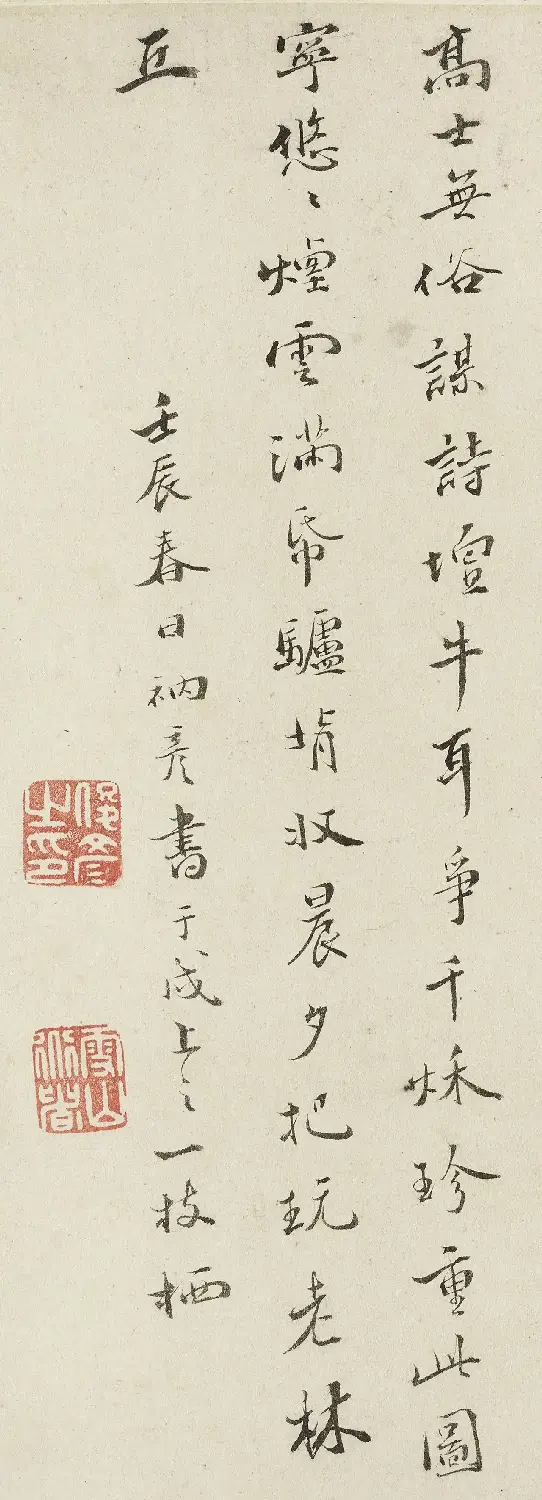 高士無俗謀詩壇牛耳爭千秌珍重此圖
寧悠〻煙雲滿帋驢収晨夕把玩老林
丘
壬辰春日衲彦書于成上之一枝栖